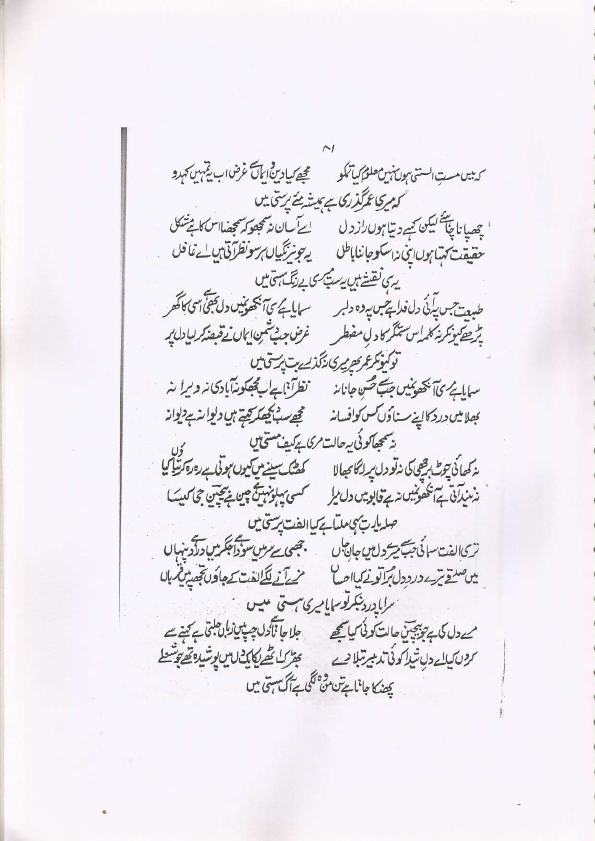 ۸۱
کہ میں مست الستی ہوں نہیں معلوم کیا تمکو مجھے کیا دین و ایماں سے غرض اب یہ تمہیں کہدو
کہ میری عمر گذری ہے ہمیشہ مئے پرستی میں
چھپانا چاہئے لیکن کہے دیتا ہوں راز دل اسے آساں نہ سمجھو کہ سمجھنا اس کا ہے مشکل
حقیقت کہتا ہوں اپنی نہ اسکو جاننا باطل یہ جو نیرنگیاں ہر سو نظر آتی ہیں اے غافل
یہی نقشے ہیں یہ سب میری بے رنگ ہستی میں
طبیعت جس پہ آئی دل فدا ہے جس پہ وہ دلبر سمایا ہے مری آنکھوں میں دل بھی ہے اسی کا گھر
پڑھے کیونکر نہ کلمہ اس ستمگر کا دل مضطر غرض جب دشمن ایماں نے قبضہ کر لیا دل پر
تو کیونکر عمر بھر میری نہ گذرے بت پرستی میں
سمایا ہے مری آنکھوں میں جب سے حسن جانانہ نظر آتا ہے اب مجھکو نہ آبادی نہ ویرانہ
بھلا میں درد کا اپنے سناؤں کس کو افسانہ مجھے سب دیکھ کر کہتے ہیں دیوانہ ہے دیوانہ
نہ سمجھا کوئی یہ حالت مری ہے کیف مستی میں
نہ کھائی چوٹ برچھی کی نہ تو دل پر لگا بھالا کھٹک سینے میں کیوں ہوتی ہے رہ رہ کر تڑپا کیوں
نہ نیند آتی ہے آنکھوں میں نہ ہے قابو میں دل میرا کسی پہلو نہیں ہے چین ہے بیچین جی کیسا
صلہ یارب یہی ملتا ہے کیا الفت پرستی میں
تری الفت سمائی جب سے میرے دل میں جان جاں جبھی سے سر میں سودا ہے جگر میں درد ہے پنہاں
میں صدقے تیرے درد دل بڑا تو نے کیا احساں مزے آنے لگے الفت کے جاؤں تجھ پہ میں قرباں
سراپا درد بنکر تو سمایا میری ہستی میں
مرے دل کی ہے جو بیچین حالت کوئی کیا سمجھے جلا جاتا ہے دل چپ ہیں زباں جلتی ہے کہنے سے
کروں کیا اے دل شیدا کوئی تدبیر بتلا دے بھڑک اٹھے یکایک دل میں پوشیدہ تھے جو شعلے
پھنکا جاتا ہے تن من وہ لگی ہے آگ ہستی میں